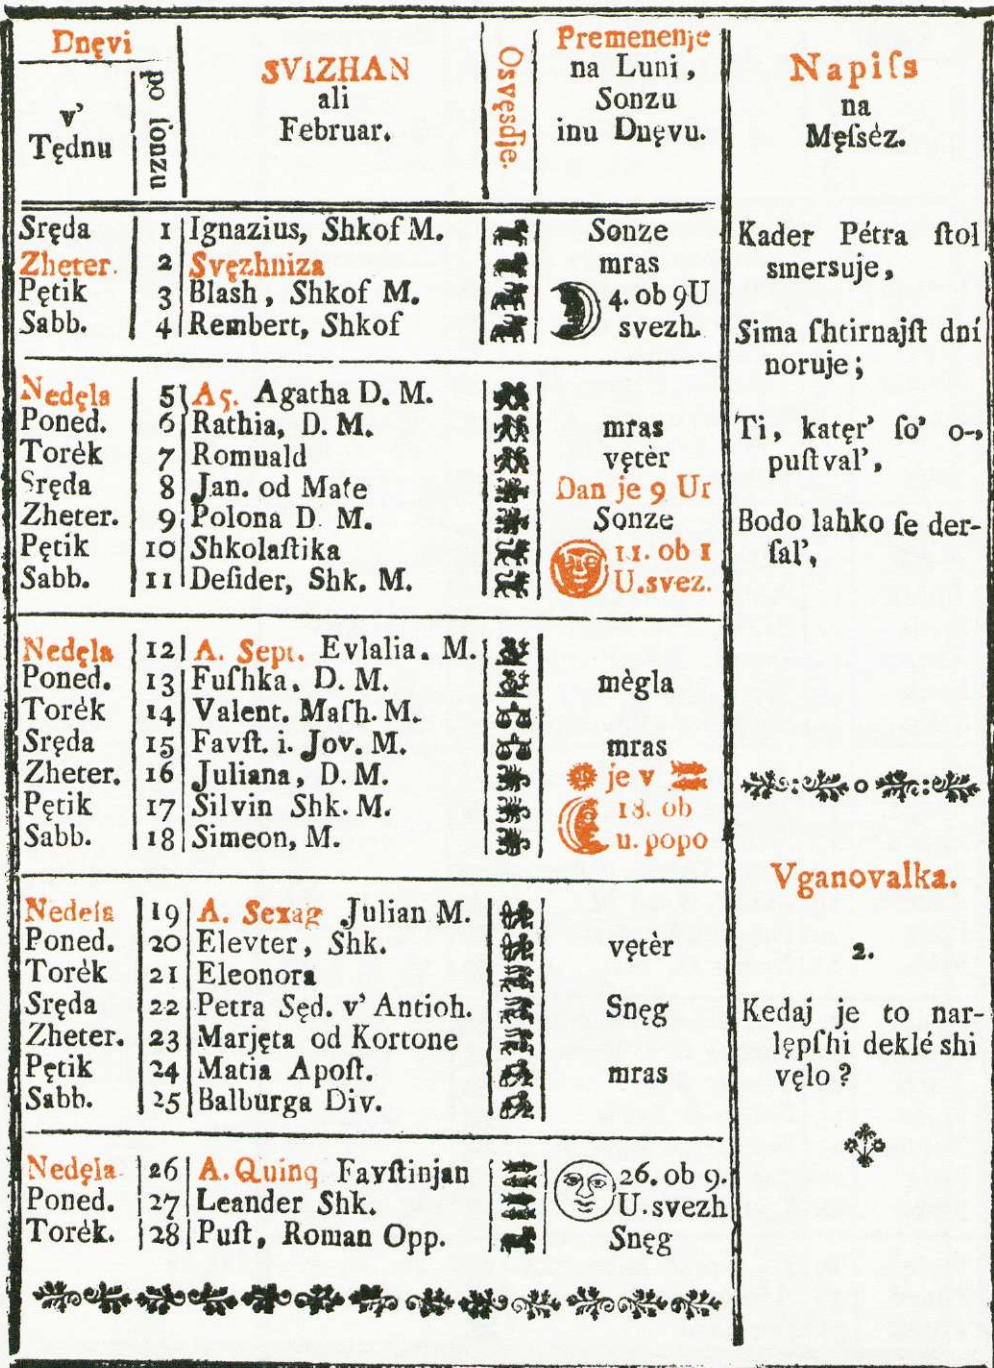 Dnęvi
v' Tędnu
po ſonzu
SVIZHAN
ali
Februar.
Osvęsdje.
Premenenje
na Luni,
Sonzu
inu Dnęvu.
Napiſs
na
Męſsėz.
Sręda 1 Ignazius, Shkof M. Sonze
Zheter. 2 Svęzhniza mras
Pętik 3 Blash, Shkof M. 4. ob 9U
Sabb. 4 Rembert, Shkof svezh.
Nedęla 5 A5. Agatha D. M.
Poned. 6 Rathia, D. M. mras
Torėk 7 Romuald vętèr
Sręda 8 Jan. od Mate Dan je 9 Ur
Zheter. 9 Polona D. M. Sonze
Pętik 10 Shkolaſtika 11. ob 1
Sabb. 11 Deſider, Shk. M. U.svez.
Nedęla 12 A. Sept. Evlalia. M.
Poned. 13 Fuſhka, D. M. mègla
Torėk 14 Valent. Maſh. M.
Sręda 15 Favſt. i. Jov. M. mras
Zheter. 16 Juliana, D. M. je v
Pętik 17 Silvin Shk. M. 18. ob
Sabb. 18 Simeon, M. u. popo
Nedela 19 A. Sexag Julian M.
Poned. 20 Elevter, Shk. vętèr
Torėk 21 Eleonora
Sręda 22 Petra Sęd. v' Antioh. Snęg
Zheter. 23 Marjęta od Kortone
Pętik 24 Matia Apoſt. mras
Sabb. 25 Balburga Div.
Nedęla 26 A. Quinq Favſtinjan 26. ob 9.
Poned. 27 Leander Shk. U.svezh
Torėk. 28 Puſt, Roman Opp. Snęg
Kader Pétra ſtol
smersuje,
Sima ſhtirnajſt dní
noruje;
Ti, katęr' ſo' o-
puſtval',
Bodo lahko ſe der-
ſal',
Vganovalka.
2.
Kedaj je to nar-
lępſhi deklé shi
vęlo?